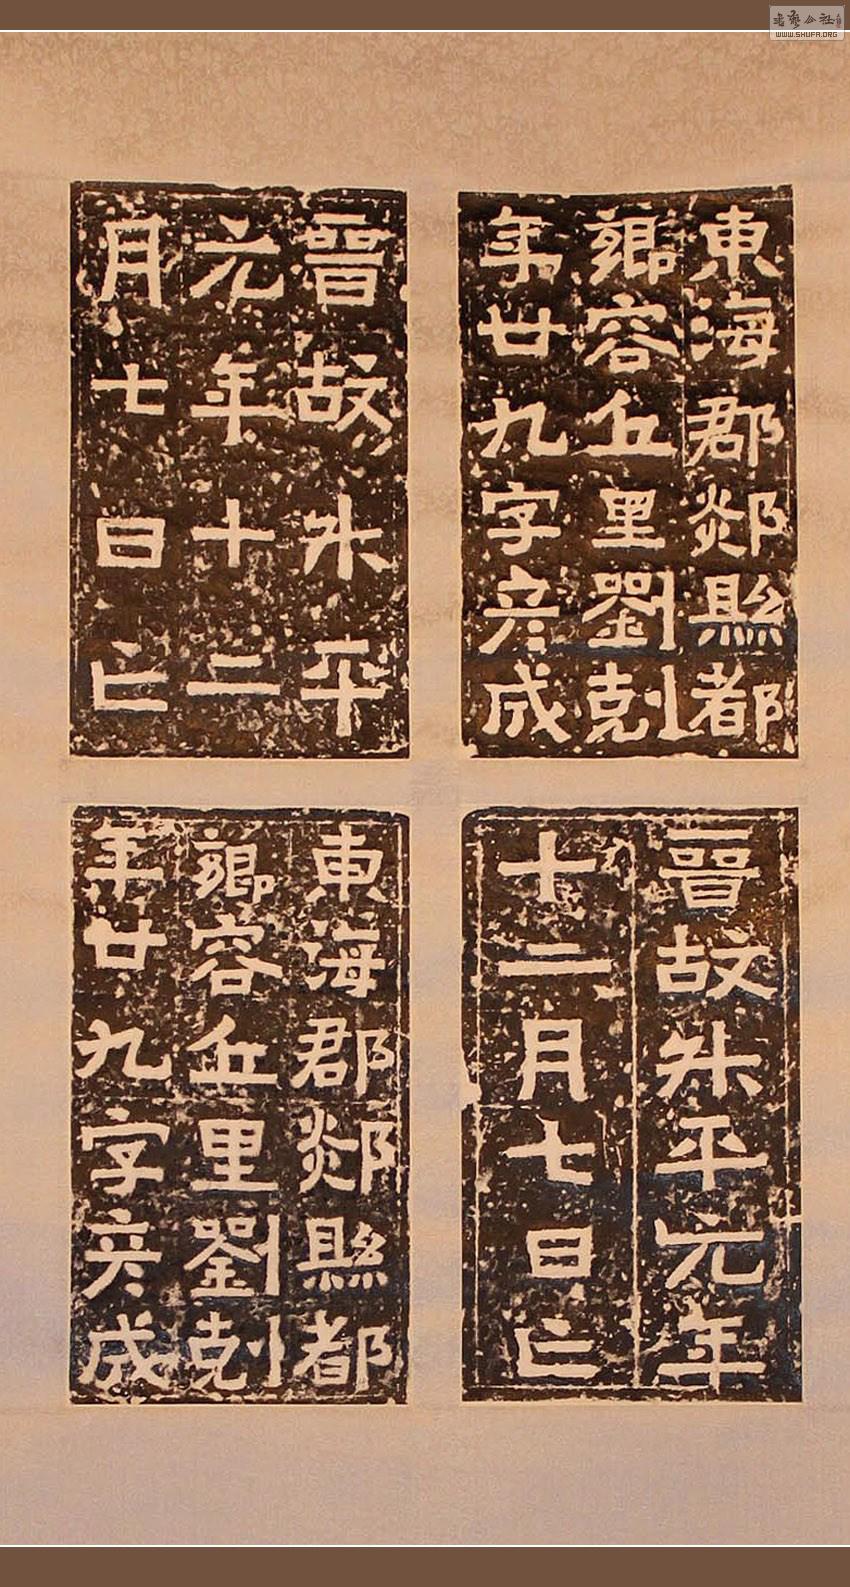 東海郡郯縣都
鄉容丘里劉剋
年廿九字彦成
晉故升平
元年十二
月七日亡
晉故升平元年
十二月七日亡
東海郡郯縣都
鄉容丘里劉剋
年廿九字彦成
书艺公社
WWW.SHUFA.ORG